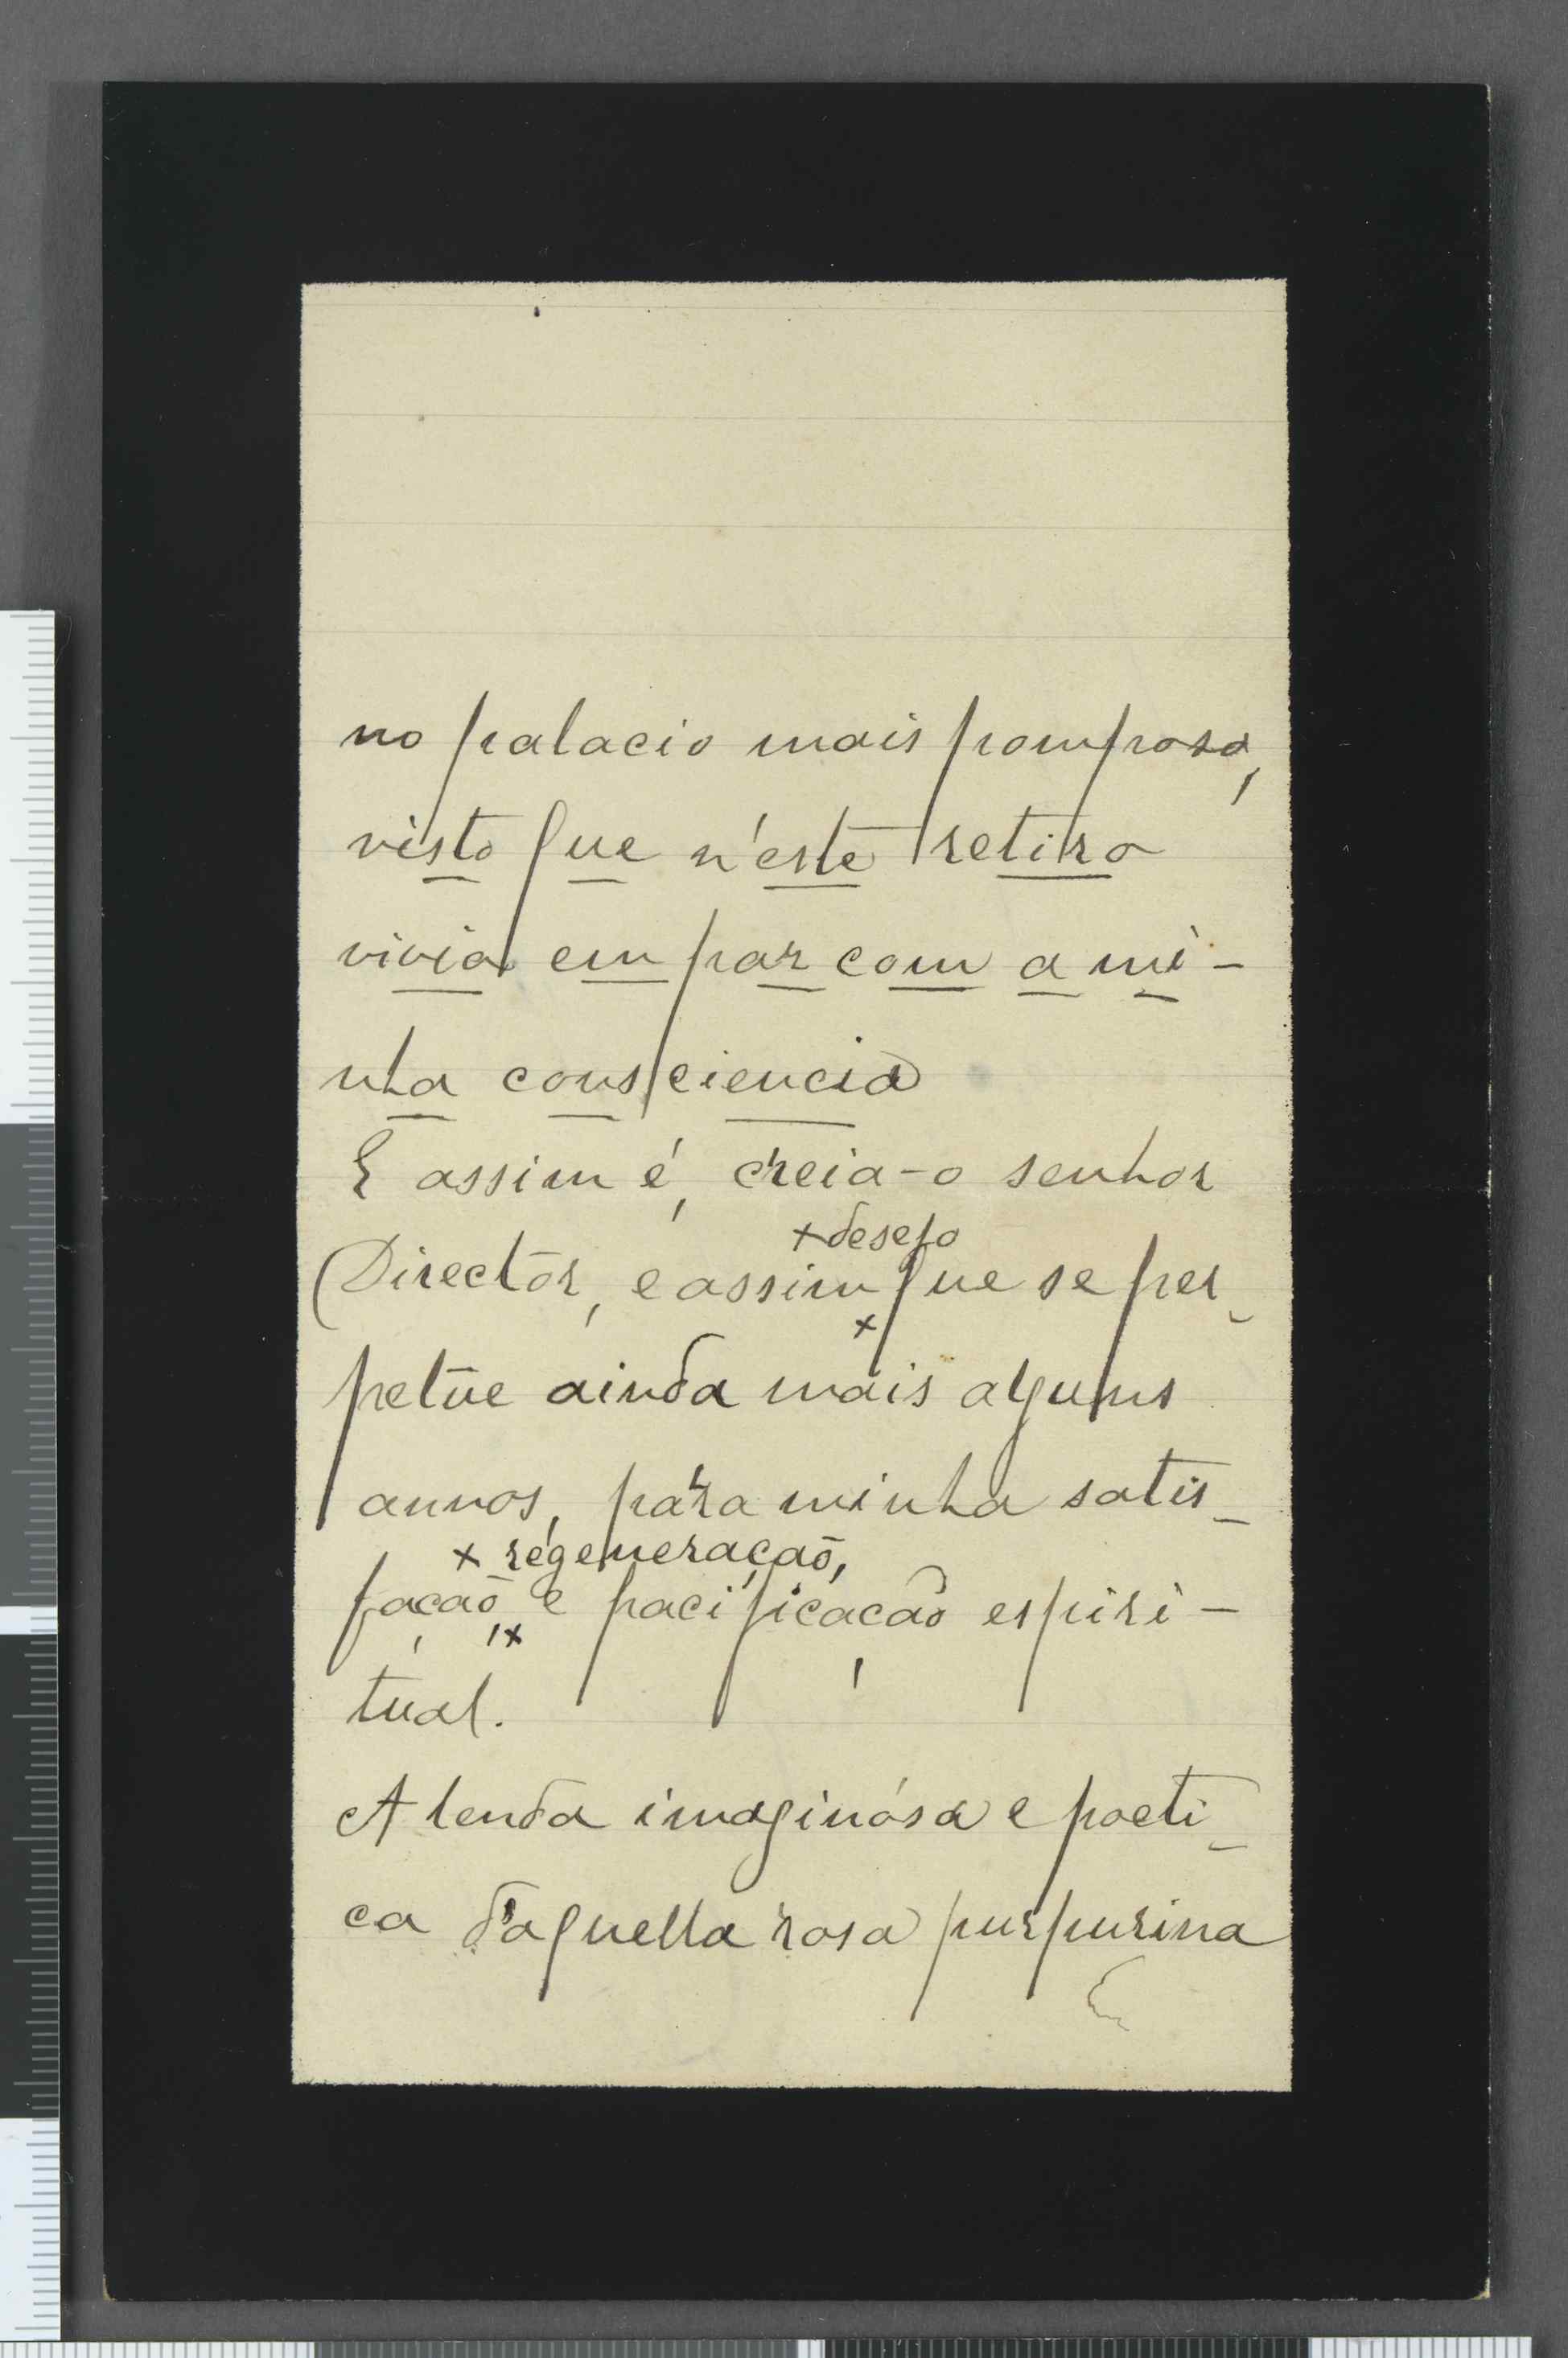 no palacio mais pomposo,
visto que n'este retiro
vivia em paz com a mi-
nha consciencia
E assim é, creia-o senhor
+ desejo
Director, e assim que se per-
+
petúe ainda mais alguns
annos, para minha satis-
+ regeneração,
façaõ, e pacificação espiri-
+
tual.
A lenda imaginósa e poeti-
ca d'aquella rosa purpurina